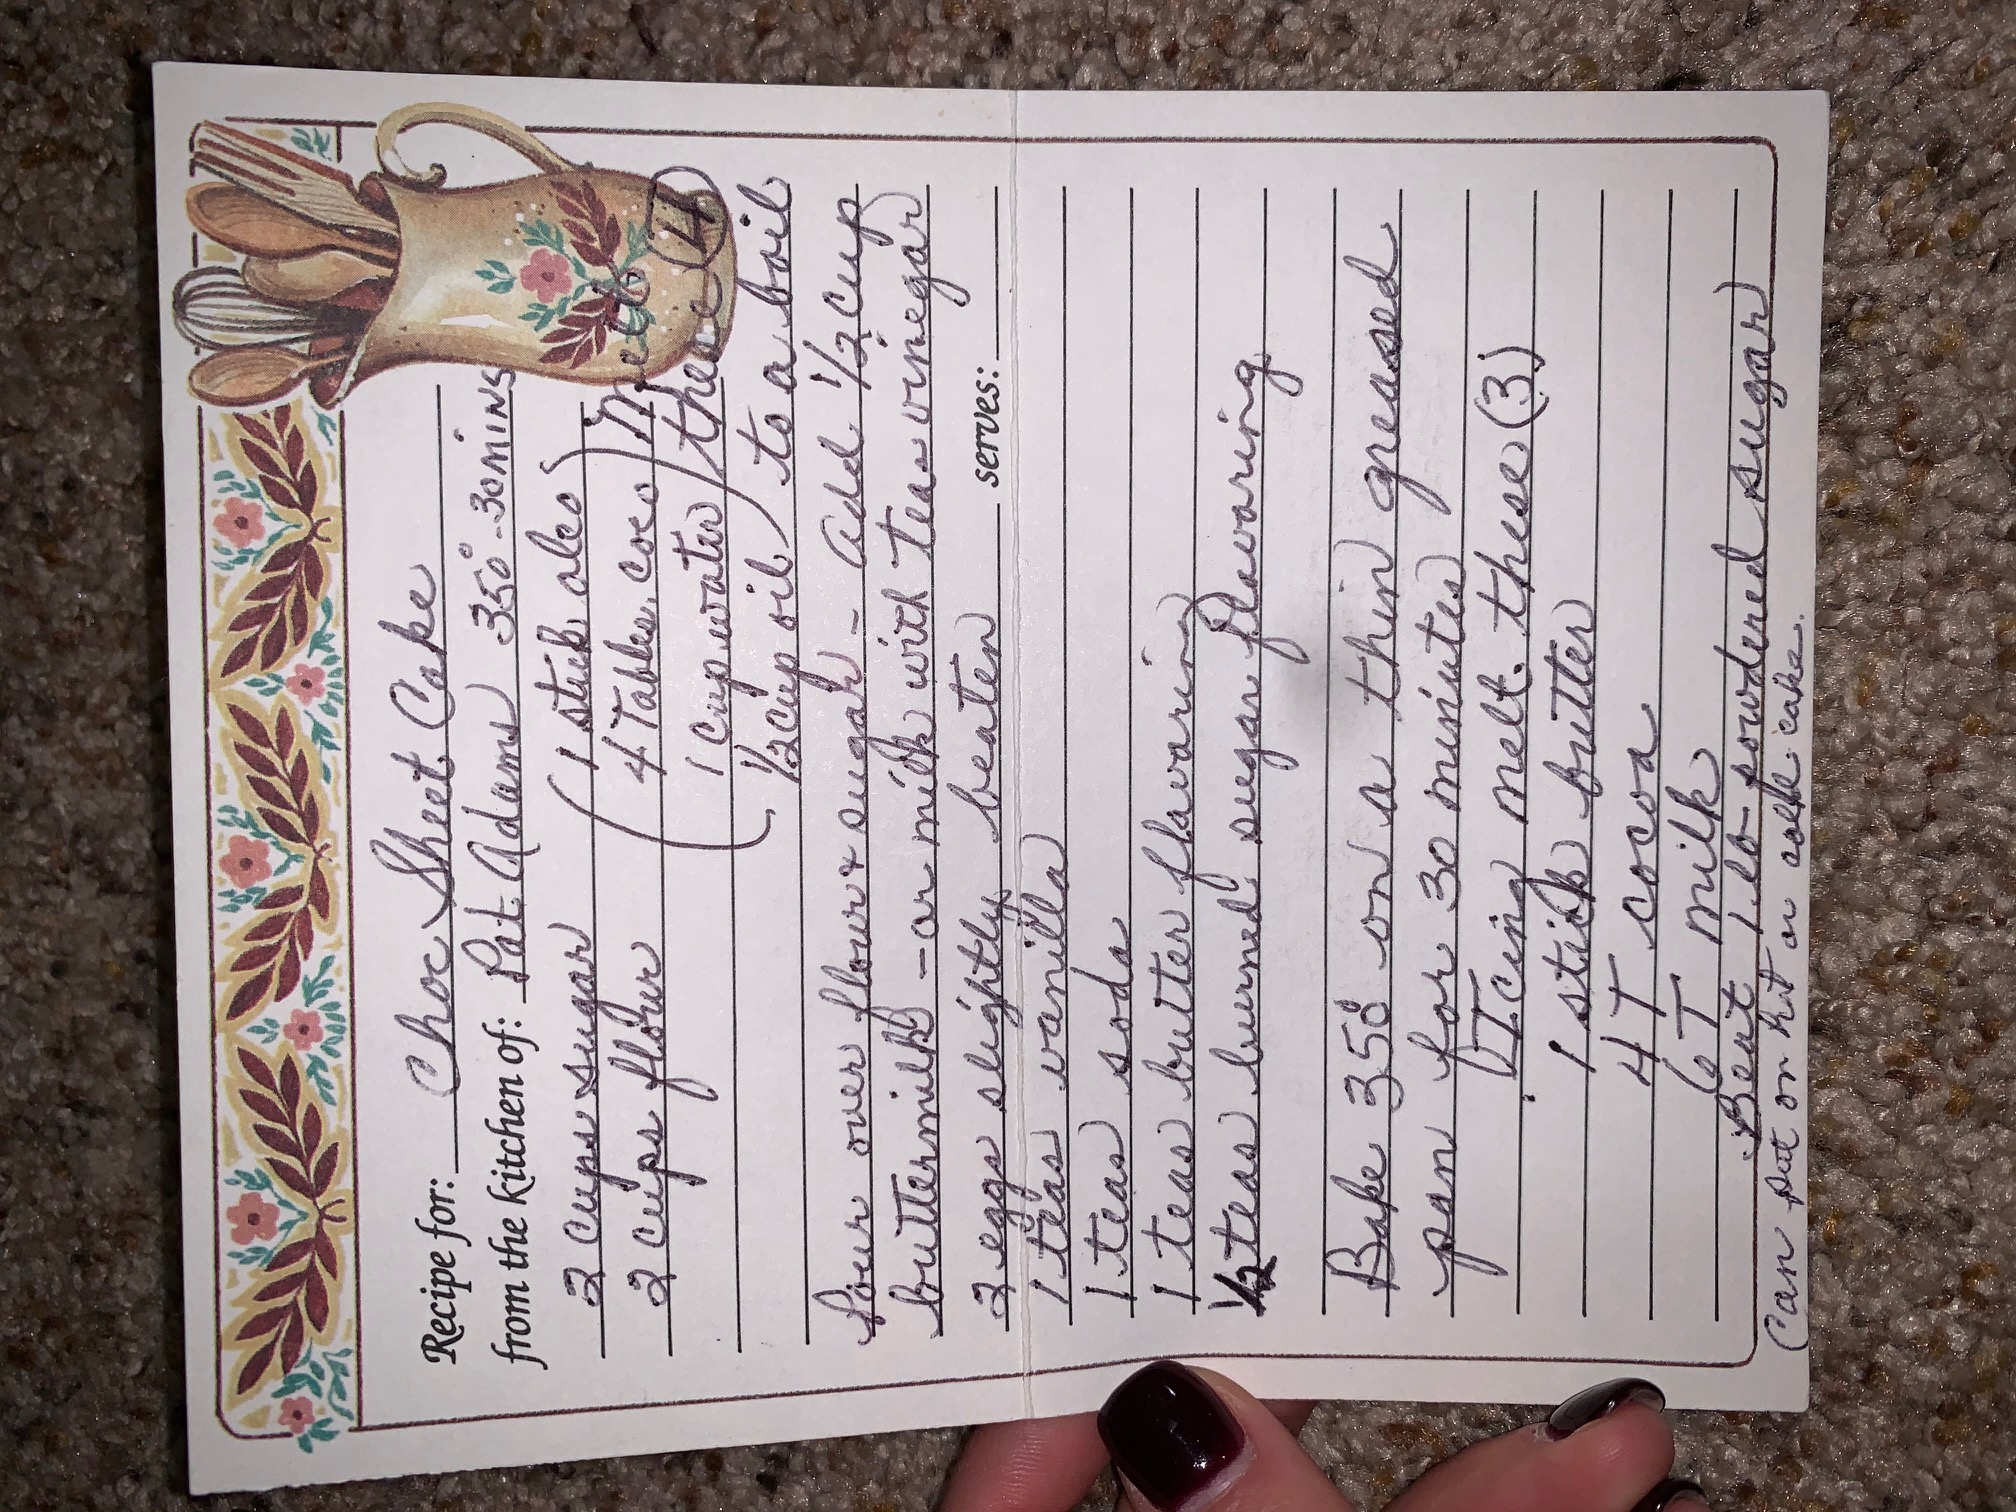 Recipe for: Choc Sheet Cake
from the kitchen of: Pat Adams 350° - 30 MINS
2 cups sugar (1 stick oleo
2 cups flour 4 Tables. coco) Melt
1 cup water these 4
1/2 cup oil to a boil
Pour over flour & sugar - Add 1/2 cup
buttermilk - or milk with teas vinegar
2 eggs slightly beaten serves:
1 teas vanilla
1 teas soda
1 teas butter flavoring
1/2 teas burned sugar flavoring
Bake 350° on a thin greased
pan for 30 minutes
Icing melt these (3)
1 stick butter
4 T cocoa
6 T milk
Beat 1 lb powdered sugar
Can put on hot or cold cake.